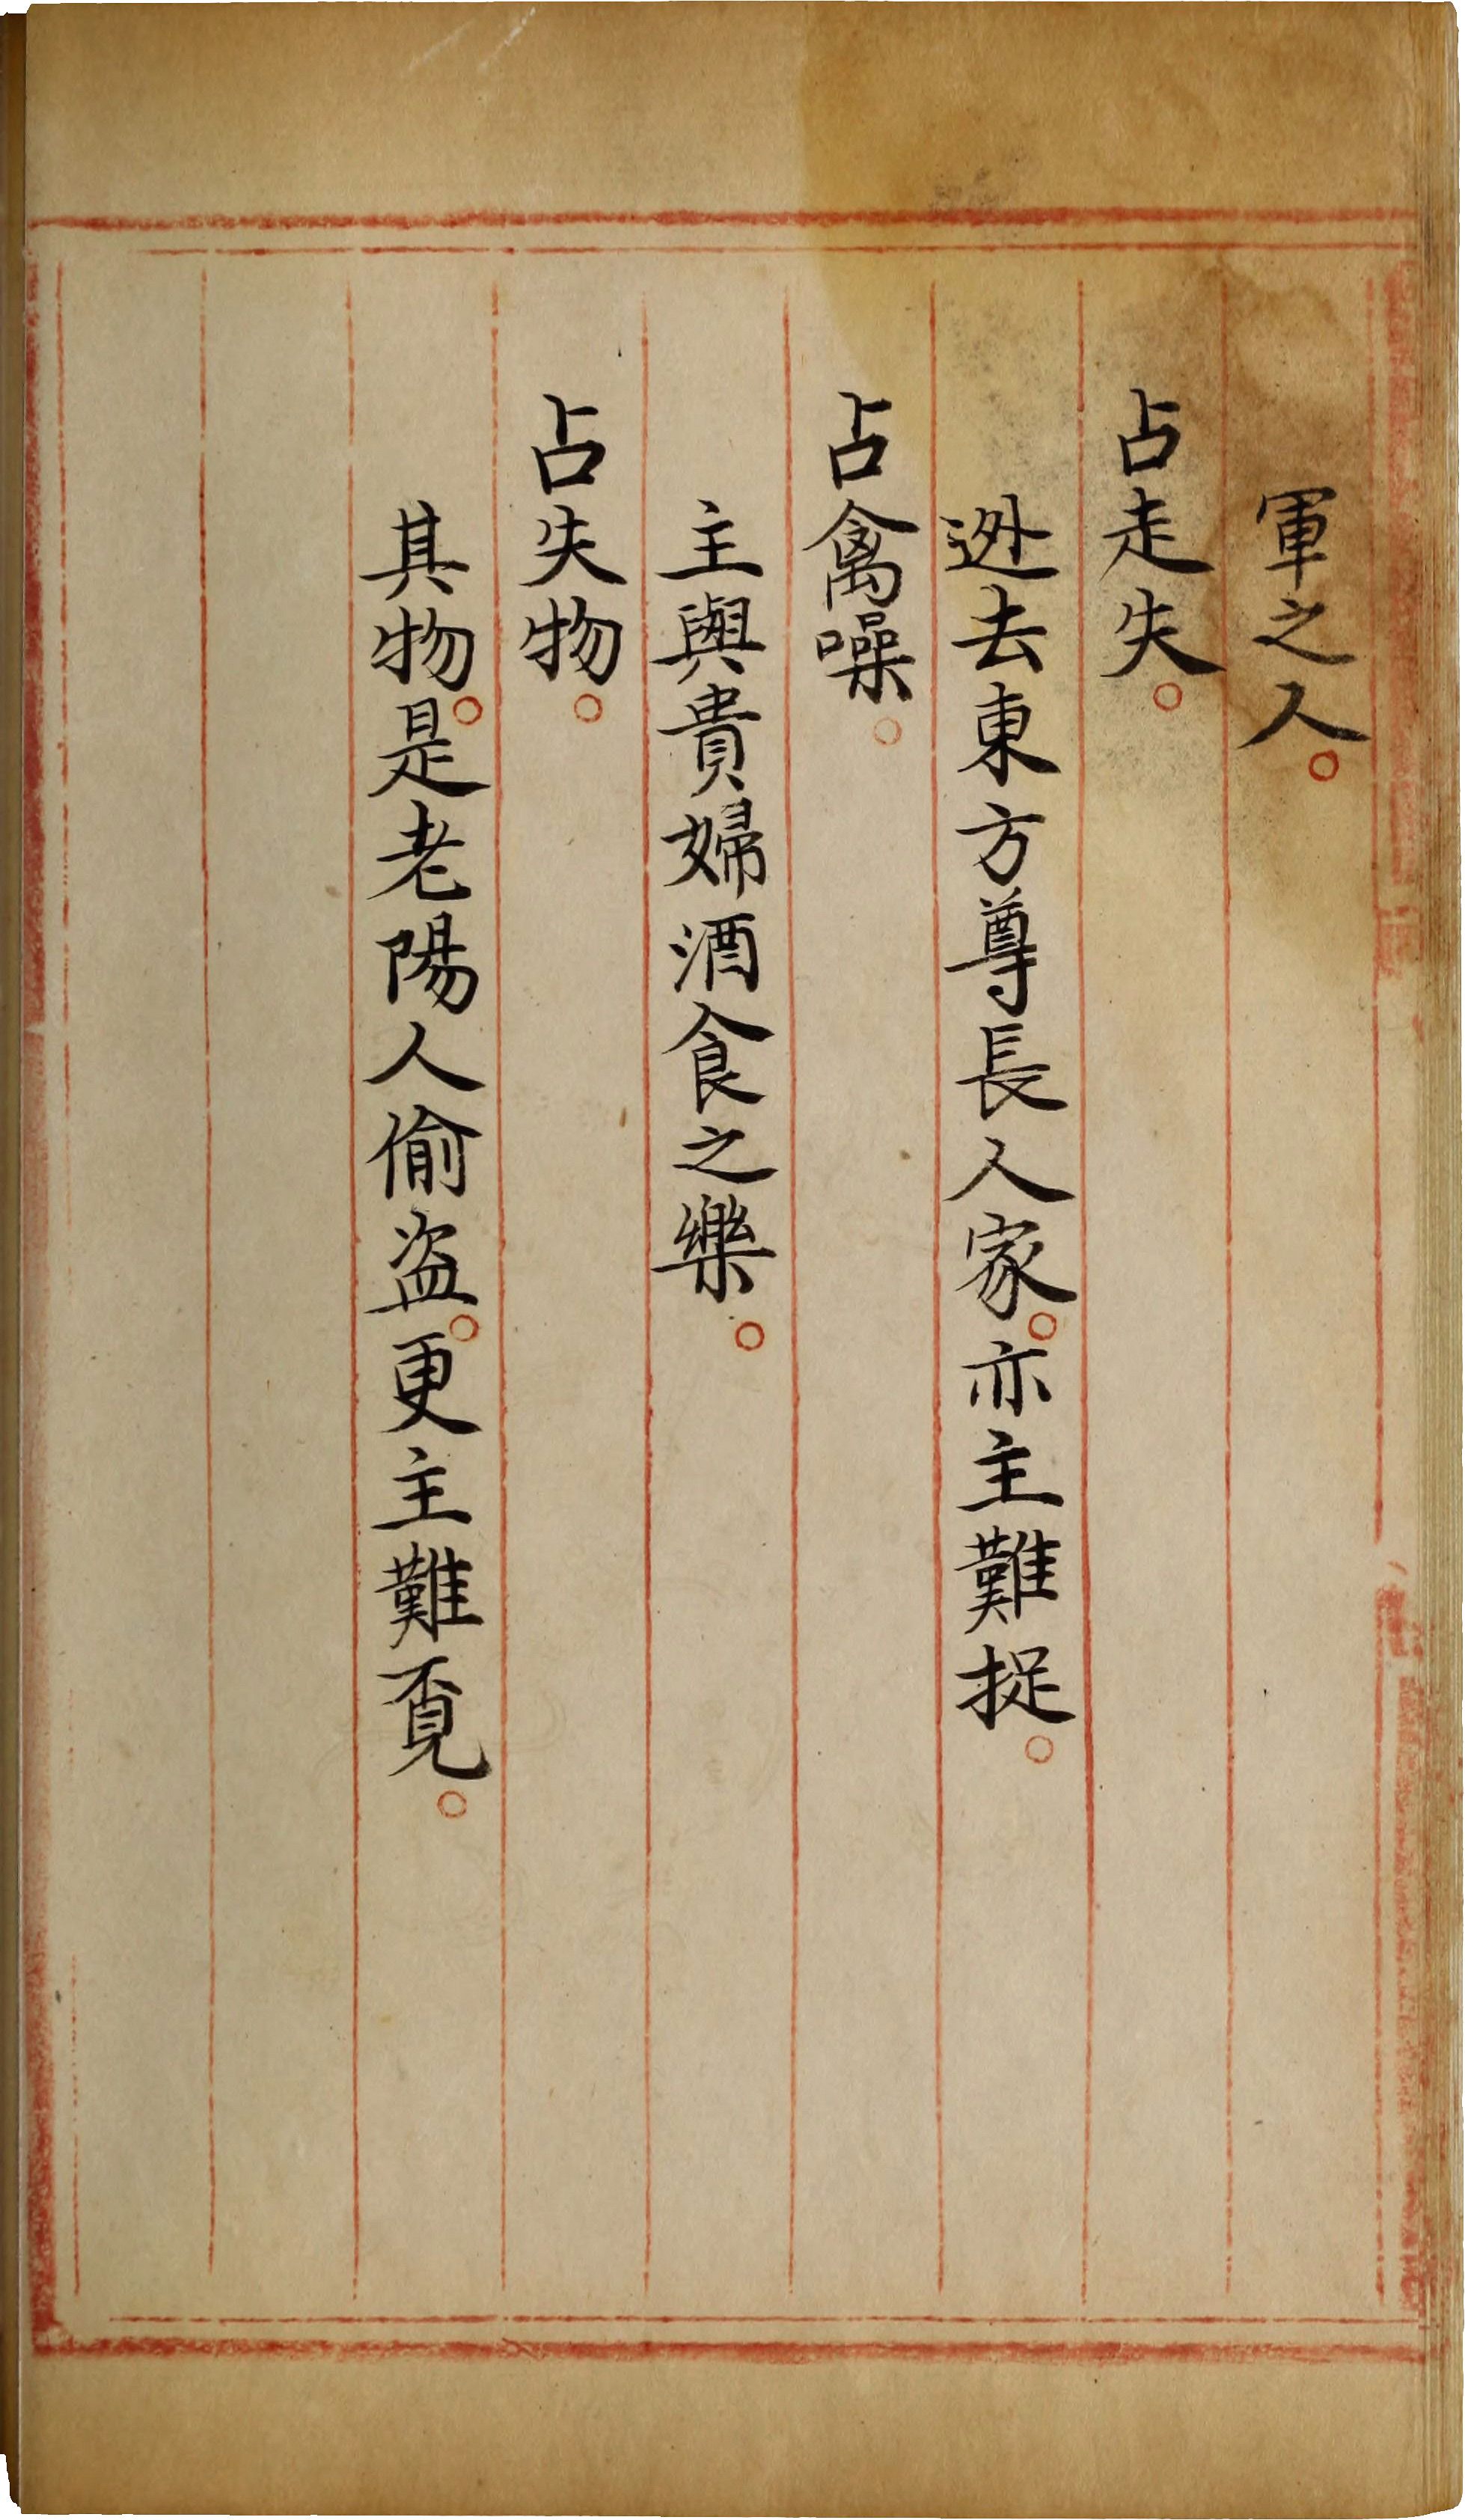 軍之人。
占走失。
迯去東方尊長人家。亦主難捉。
占禽噪。
主與貴婦酒食之樂。
占失物。
其物。是老陽人偷盗。更主難覔。